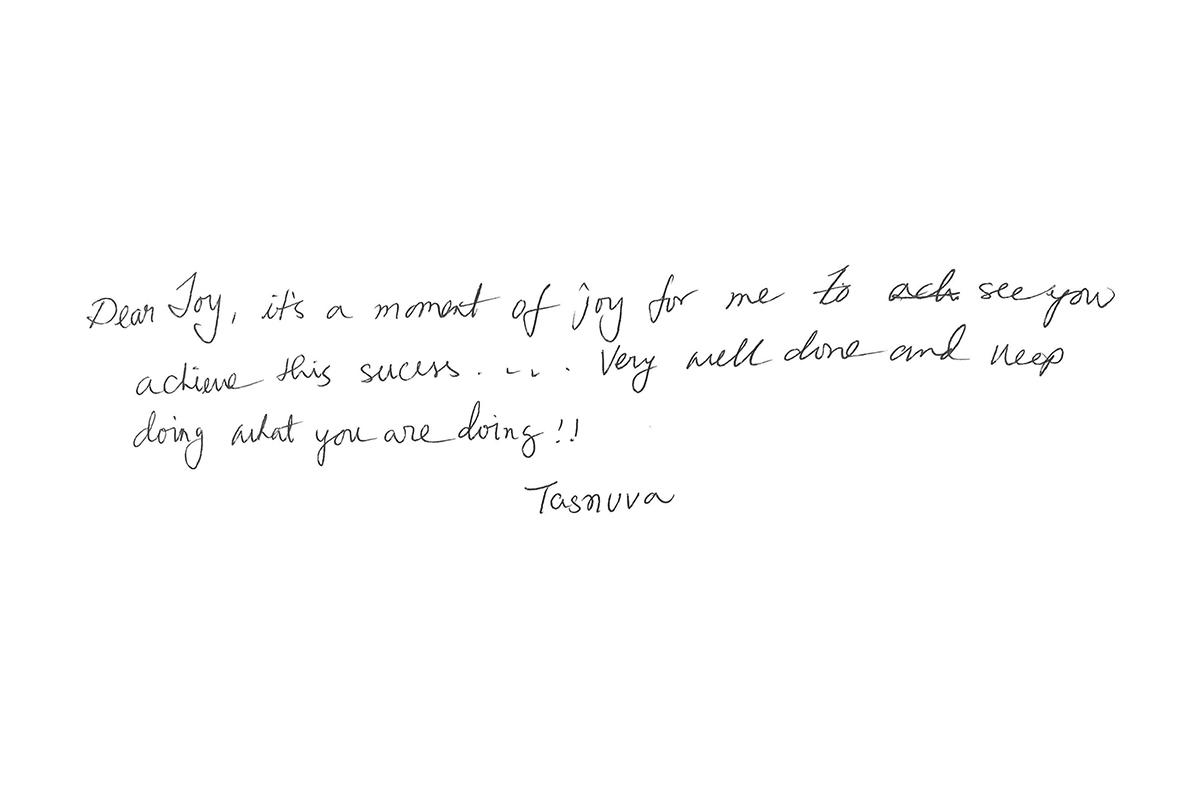 Dear Joy, it's a moment of joy for me to ach see you
achieve this sucess..... Very well done and keep
doing what you are doing!!
Tasnuva